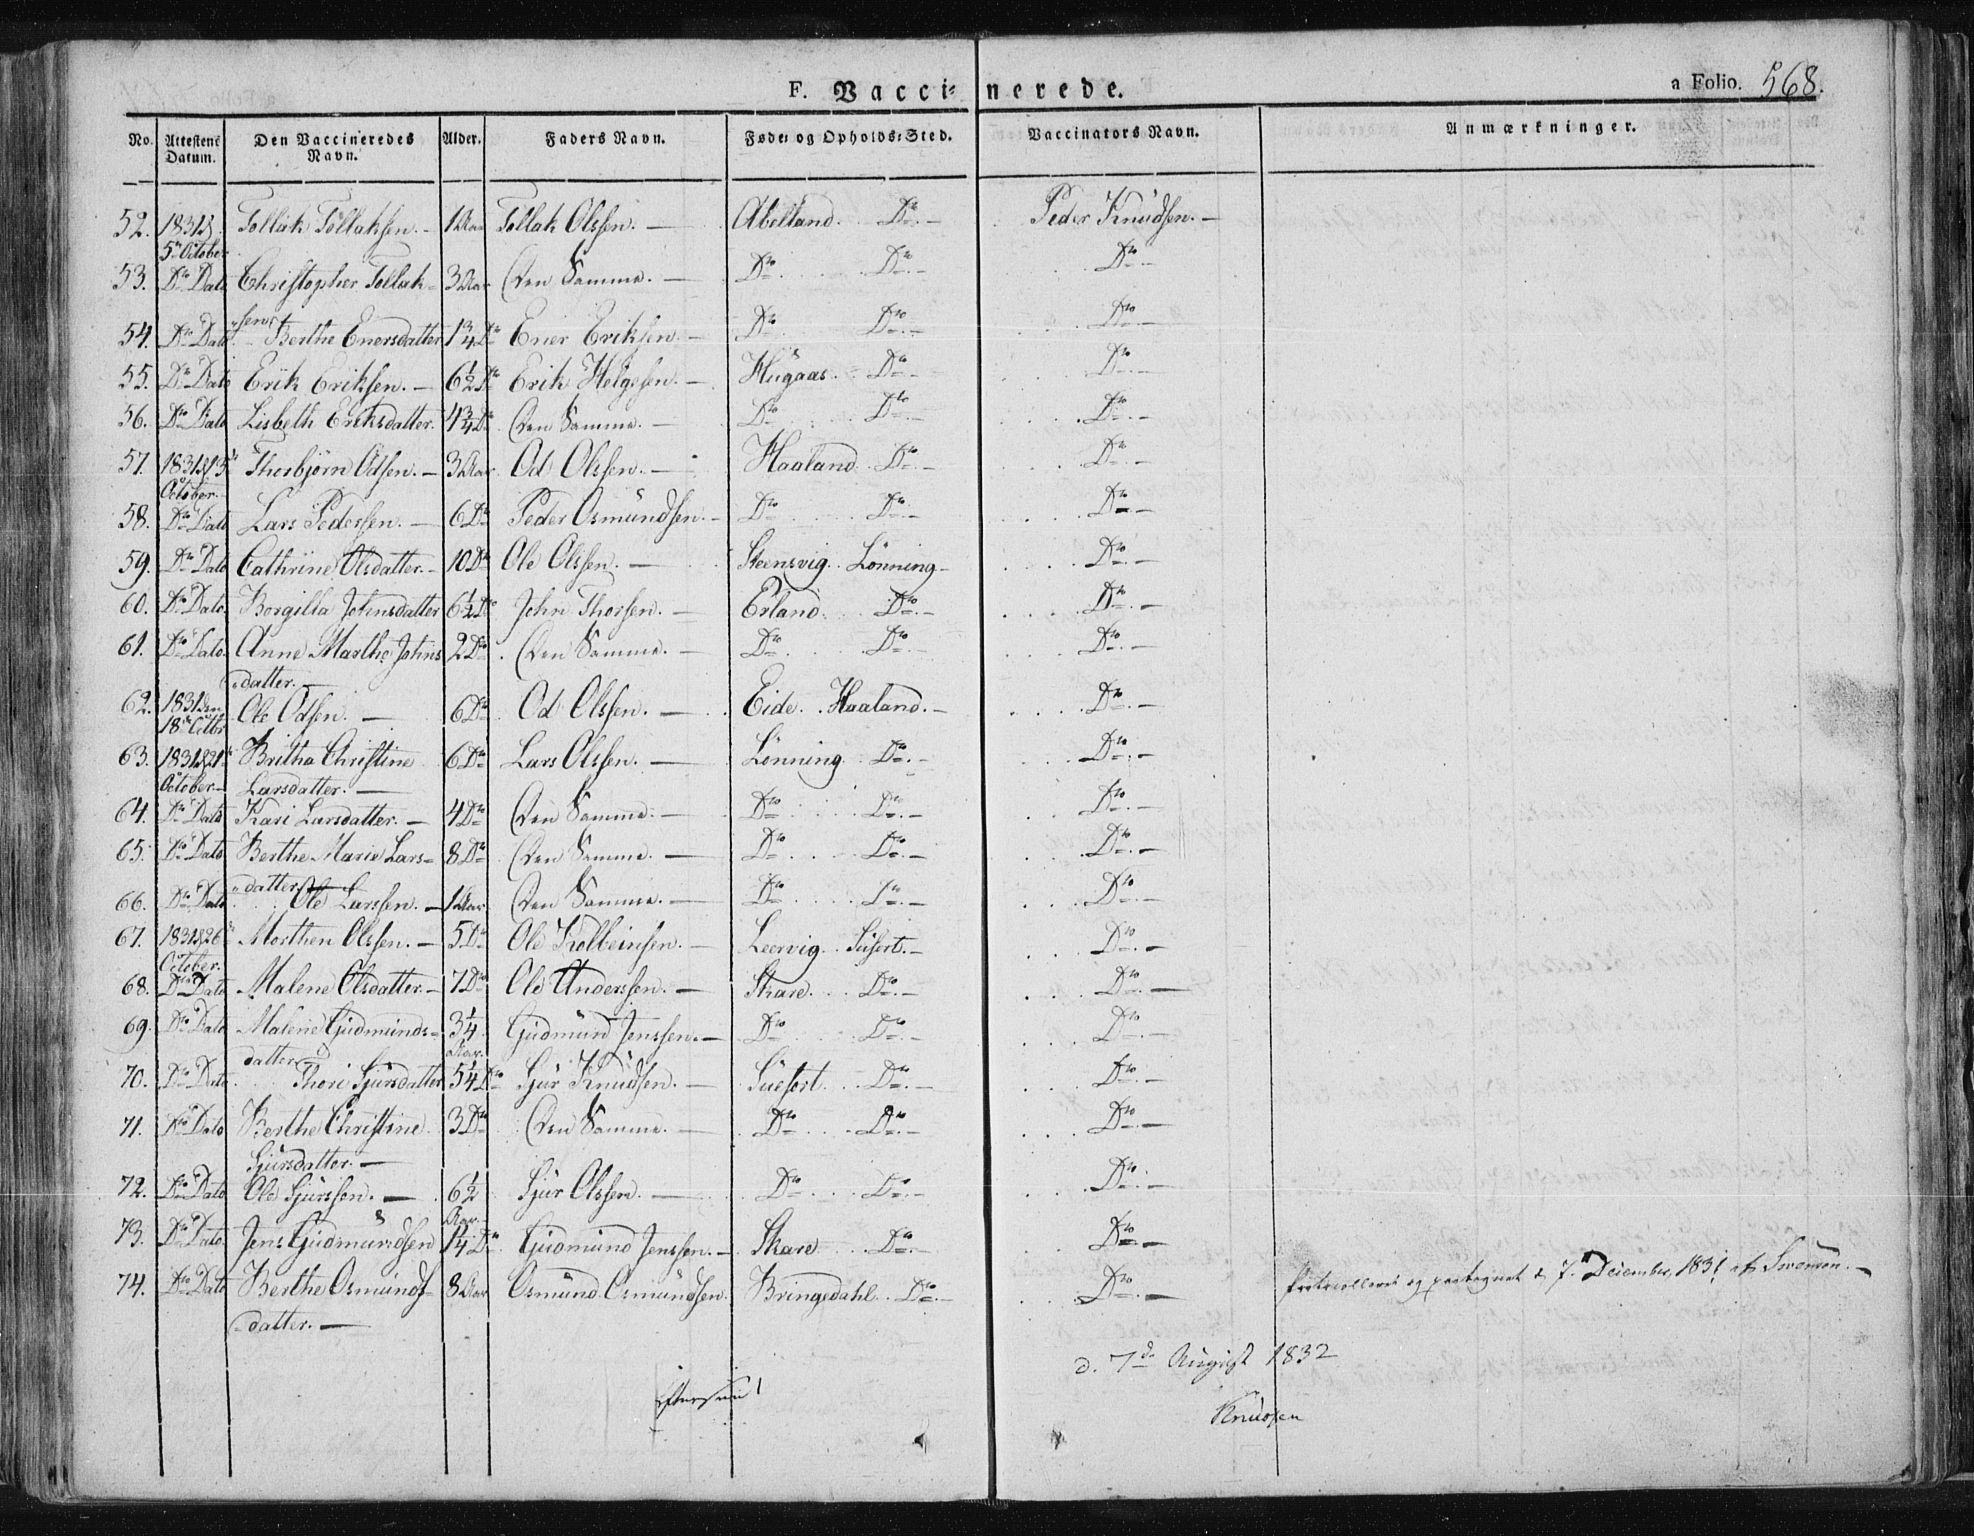 F. Vaccinerede.
a Folio. 568.
No. Attestens Datum. Den Vaccineredes Navn. Alder. Faders Navn. Føde- og Opholds-Sted. Vaccinators Navn. Anmærkninger.
52. 1831 5te October Tollak Tollaksen. – 1 Aar Tollak Olssen. – Abelland. Do. – Peder Knudsen. –
53. Do Dato Christopher Tollak-
sen. 3 Aar Den Samme. – Do Do. – Do. –
54. Do Dato Berthe Enersdatter 1 3/4 Do Ener Eriksen. – Do Do. – Do. –
55. Do Dato Erik Eriksen. – 6 1/2 Do Erik Helgesen. – Hügaas. Do. – Do. –
56. Do Dato Lisbeth Eriksdatter. 4 3/4 Do Den Samme. – Do Do. – Do. –
57. 1831 13de October. Thorbjørn Odsen. – 3 Aar Od Olssen. – Haaland Do. – Do. –
58. Do Dato Lars Pedersen. – 6 Do Peder Osmündsen. – Do Do. – Do. –
59. Do Dato Cathrine Olsdatter. – 10 Do Ole Olssen. – Steensvig. Lønning – Do. –
60. Do Dato. Borgilla Johnsdatter 6 1/2 Do John Thorsen. – Erland. Do. – Do. –
61. Do Dato. Anne Marthe Johns
datter. – 2 Do Den Samme. – Do Do. – Do. –
62. 1831 den 18de Octbr Ole Odsen. – 6 Do Od Olssen. – Eide. Haaland. – Do. –
63. 1831 21de October – Britha Christine
Larsdatter. – 6 Do Lars Olssen. – Lønning Do. – Do. –
64. Do Dato Kari Larsdatter. – 4 Do Den Samme. – Do Do. – Do. –
65. Do Dato Berthe Marie Lars-
datter. 8 Do Den Samme. – Do Do. – Do. –
66. Do Dato Ole Larssen. – 1 Aar. Den Samme. – Do Do. – Do. –
67. 1831 26de October. Morthen Olssen. – 5 Do Ole Kolbeinsen. – Leervig. Do. –
68. Do Dato Malene Olsdatter. – 7 Do Ole Anderssen. – Skare. Do. – Do. –
69. Do Dato Malene Güdmünds-
datter 3 1/4 Aar. Güdmünd Jenssen. – Do Do. – Do. –
70. Do Dato Thori Sjürsdatter 5 1/4 Do Sjür Knüdsen. – Süefort Do. – Do. –
71. Do Dato Berthe Christine
Sjürsdatter. – 3 Do Den Samme. – Do Do. – Do. –
72. Do Dato Ole Sjürssen. – 6 1/2 Aar Sjür Olssen. – Do Do. – Do. –
73. Do Dato. Jens Güdmündsen 1 1/4 Do Güdmünd Jenssen. – Skare Do. – Do. –
74. Do Dato Berthe Osmünds-
datter. – 8 Aar Osmünd Osmündsen. Bringedahl. Do. – Do. – og d 7. December 1831 af
d. 7de August 1832
Knudsen